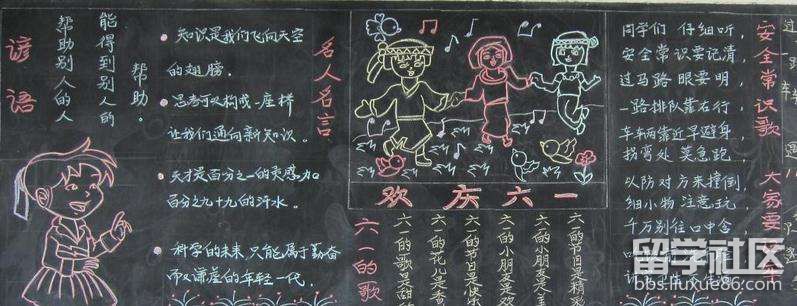 谚语
帮助别人的人
能得到别人的
帮助。
名人名言
知识是我们飞向天空
的翅膀。
思考可以构成一座桥
让我们通向新知识。
天才是百分之一的灵感加
百分之九十九的汗水。
科学的未来,只能属于勤奋
而又谦虚的年轻一代。
欢庆六一
六一的歌
六一的歌是甜
六一的花儿是香
六一的节日是快乐
六一的小朋友是欢
六一的小朋友是美
六一的节目是精彩
安全常识歌
大家要
同学们 仔细听,
安全常识要记清,
过马路 眼要明,
一路排队靠右行,
车车两靠近早避身,
拐弯处 莫急跑,
以防对方来撞倒,
细小物 注意玩,
千万别往口中含
过
一路
车车
遇
留学社区
bbs.liuxue86.com